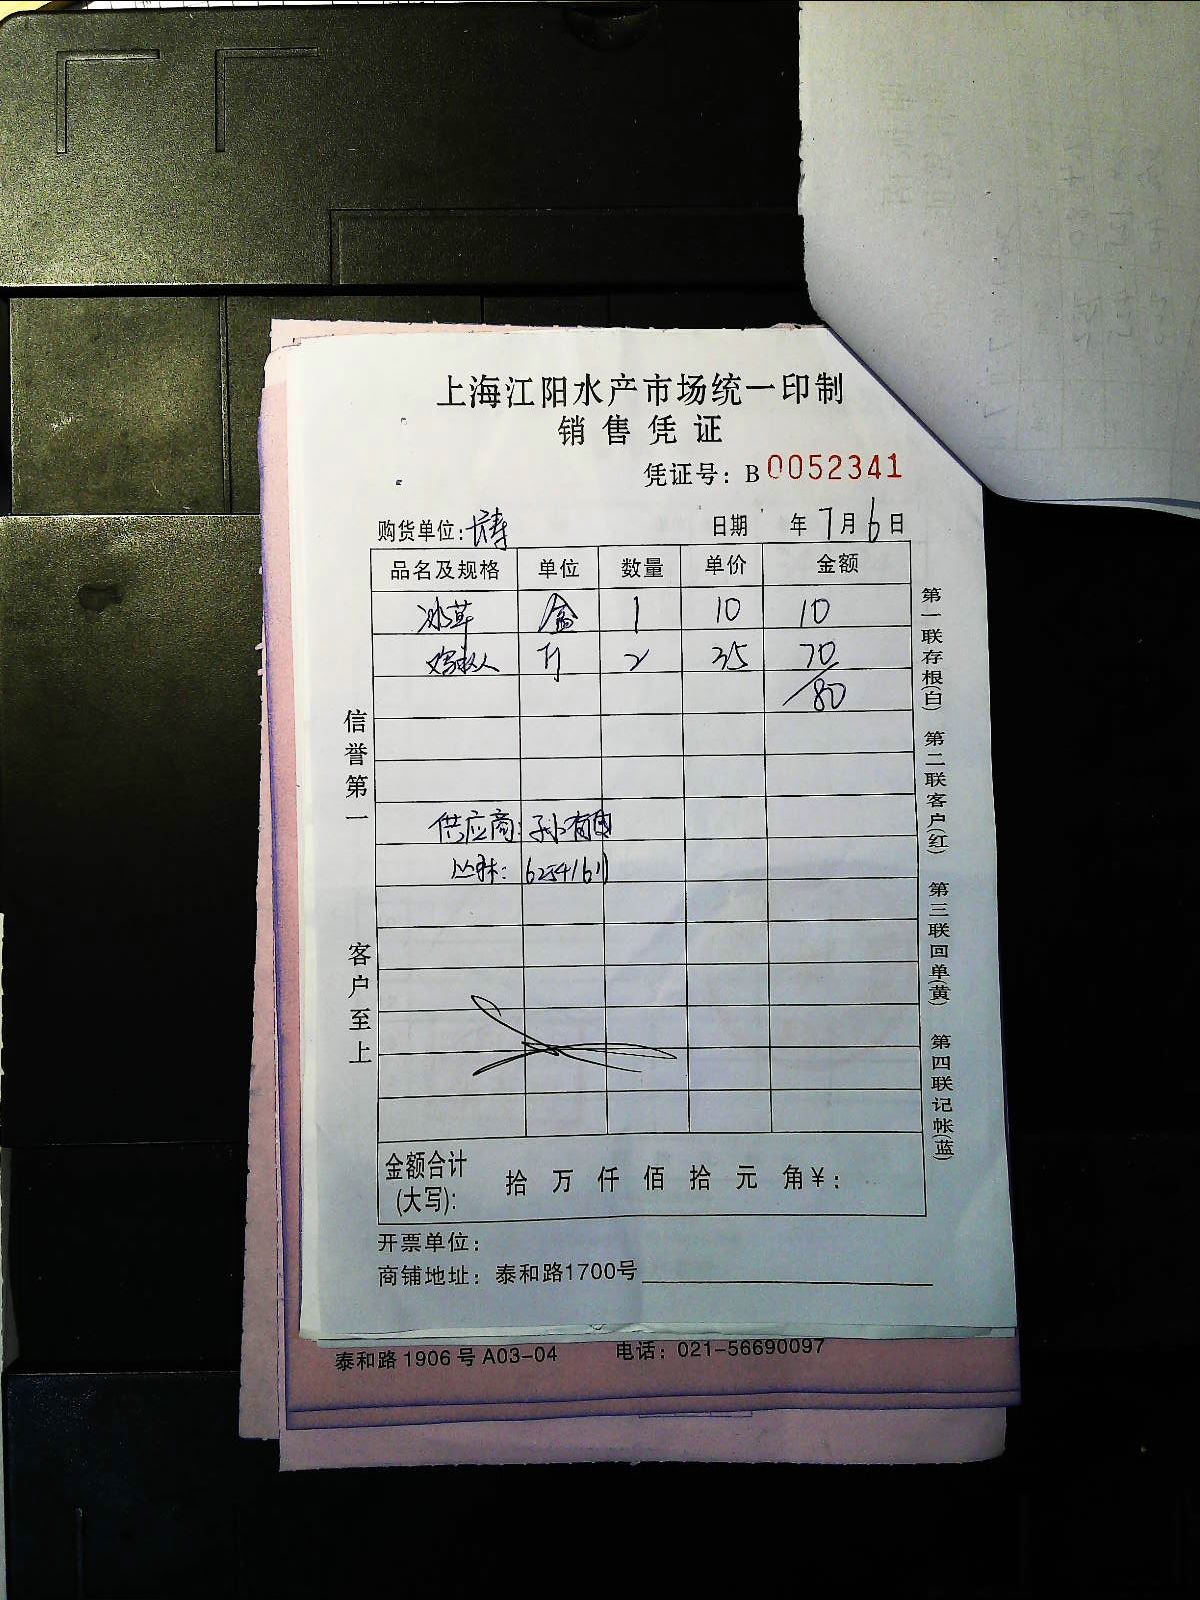 上海江阳水产市场统一印制
销售凭证
凭证号：B 0052341
购货单位： 日期 年 7月6日
品名及规格 单位 数量 单价 金额
冰草 盒 1 10 10
斤 2 35 70
80
供应商：孙有国
62541611
金额合计(大写)： 拾 万 仟 佰 拾 元 角 ¥：
开票单位：
商铺地址：泰和路1700号
信誉第一
客户至上
第一联存根(白) 第二联客户(红) 第三联回单(黄) 第四联记帐(蓝)
泰和路 1906 号 A03-04 电话：021-56690097